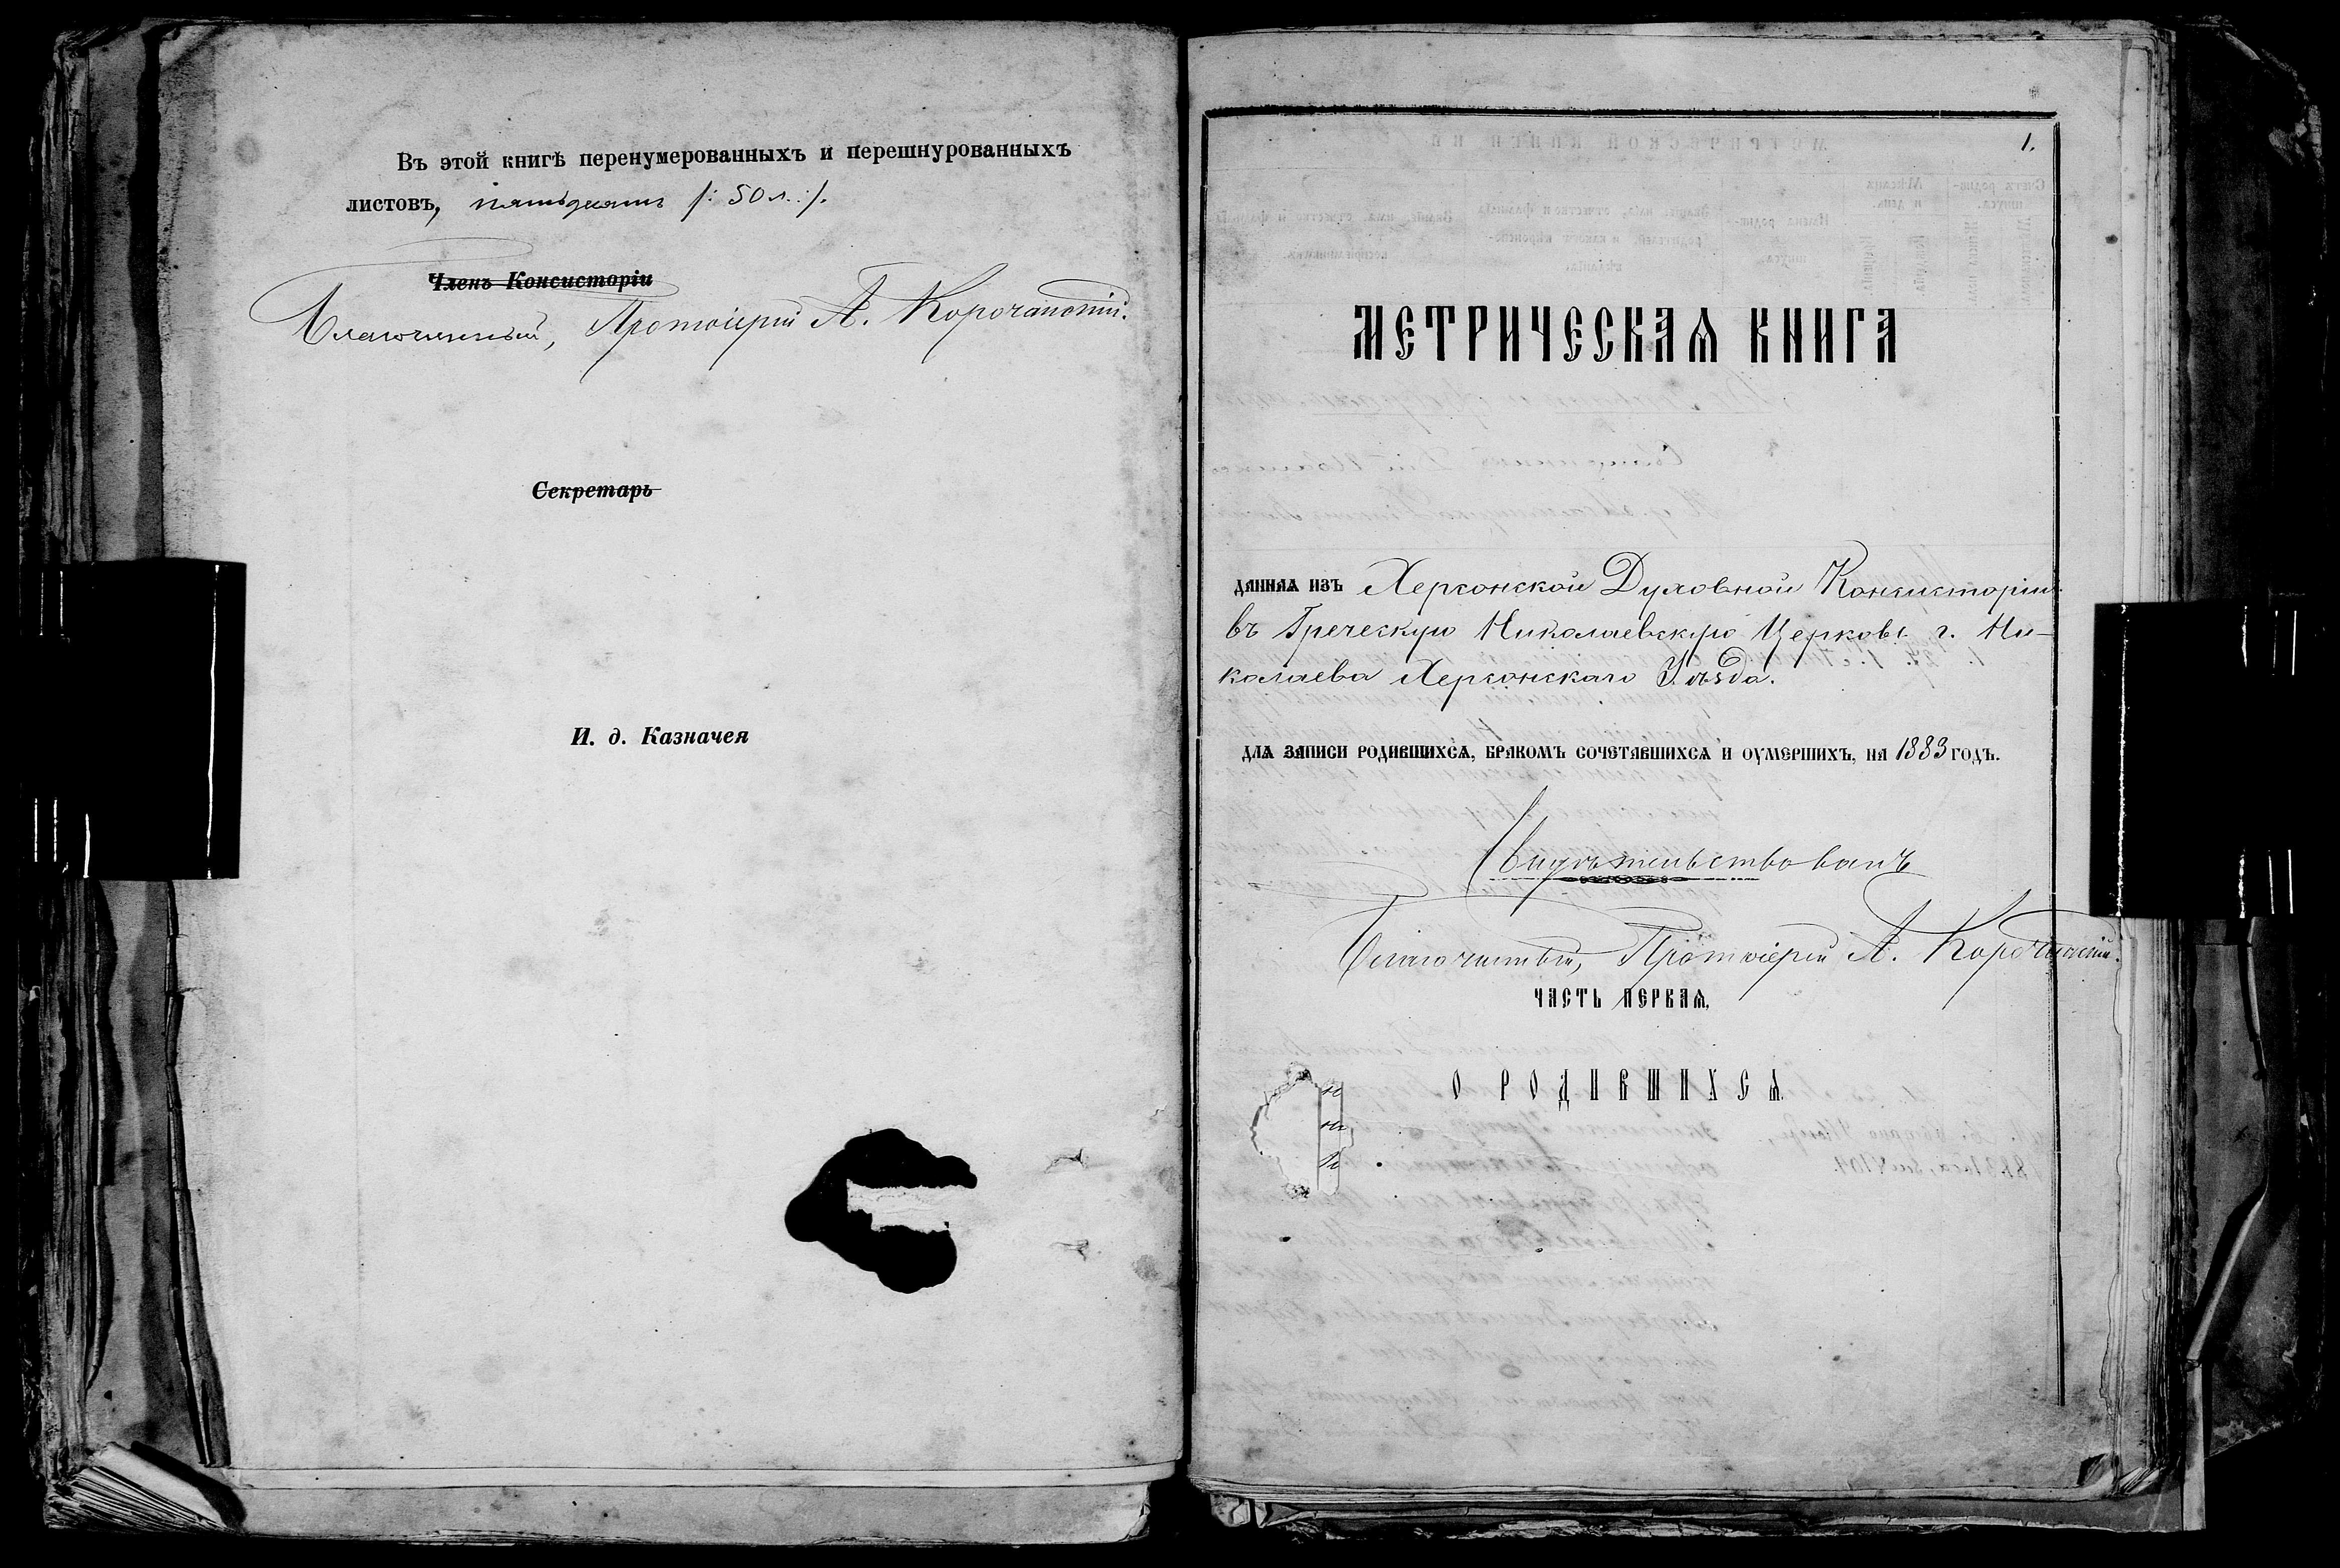 Въ этой книгѣ перенумерованныхъ и перешнурованныхъ
листовъ, пятьдесятъ /: 50 л. :/.
Членъ Консисторіи
Благочинный, Протоіерей А. Корочанскій.
Секретарь
И. д. Казначея
1.
МЕТРИЧЕСКАѦ КНИГА
даннаѧ изъ Херсонской Духовной Консисторіи
въ Греческую Николаевскую Церковь г. Ни-
колаева Херсонскаго Уѣзда.
длѧ записи родившихсѧ, бракомъ сочетавшихсѧ и оумершихъ, на 1883 годъ.
Свидѣтельствовалъ
Благочинный, Протоіерей А. Корочанскій.
ЧАСТЬ ПЕРВАѦ,
О РОДИВШИХСѦ